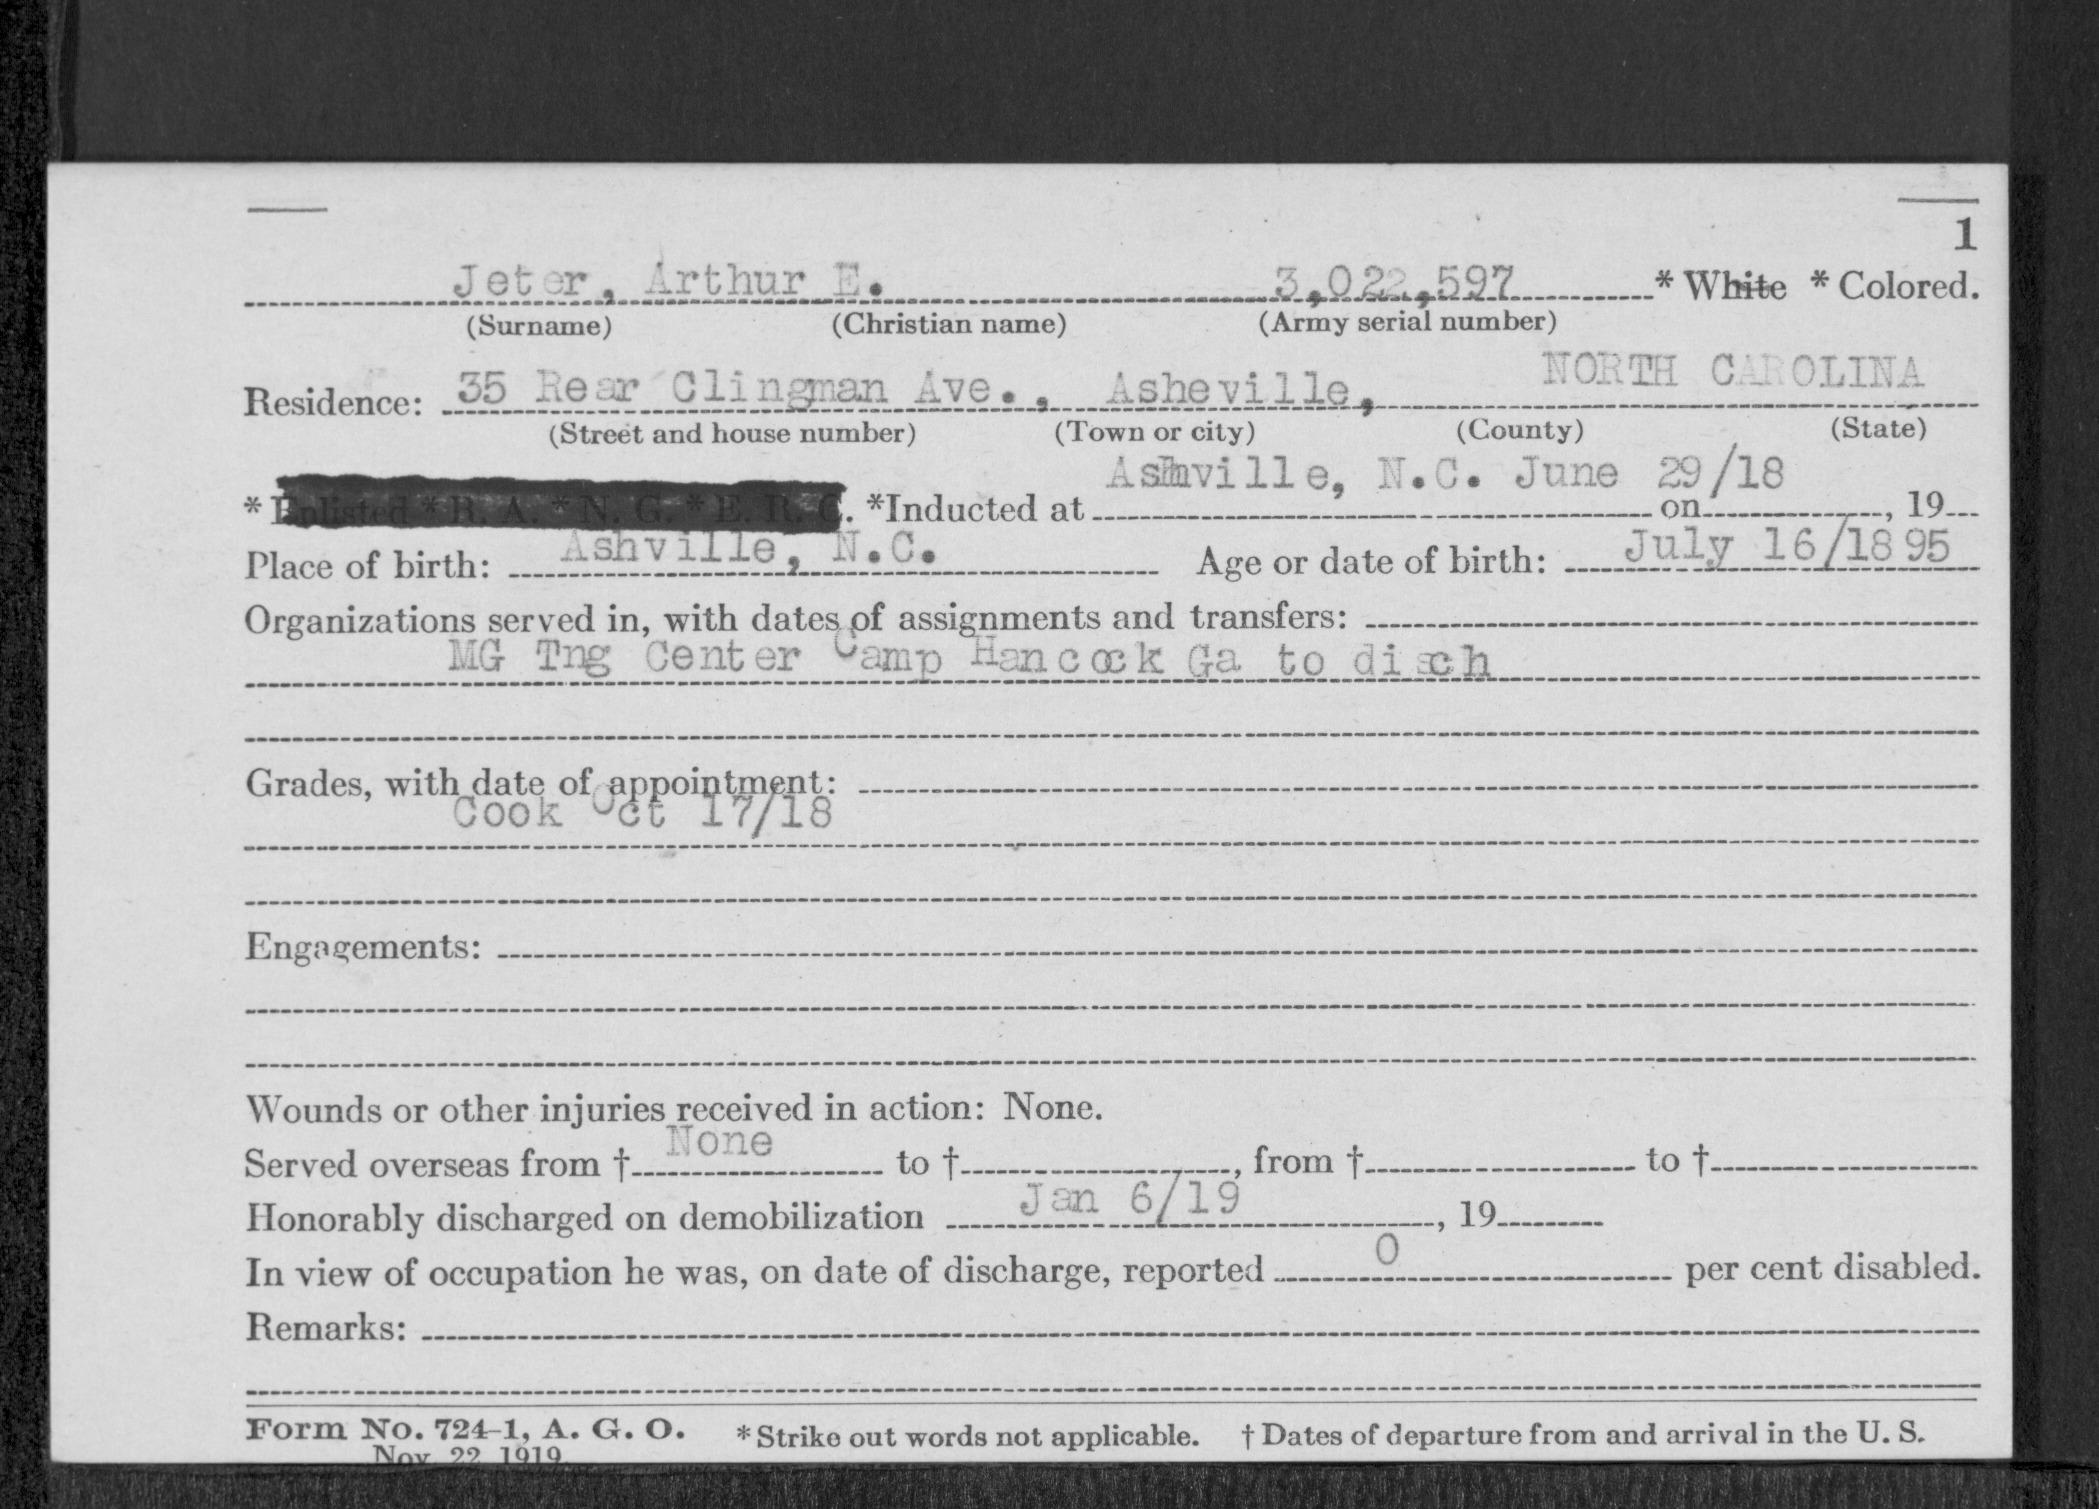 1
Jeter, Arthur E. 3,022,597 * White * Colored.
(Surname) (Christian name) (Army serial number)
NORTH CAROLINA
Residence: 35 Rear Clingman Ave., Asheville,
(Street and house number) (Town or city) (County) (State)
Ashville, N.C. June 29/18
* Enlisted * R. A. * N. G. * E. R. C. *Inducted at on , 19
Place of birth: Ashville, N.C. Age or date of birth: July 16/1895
Organizations served in, with dates of assignments and transfers:
MG Tng Center Camp Hancock Ga to disch
Grades, with date of appointment:
Cook Oct 17/18
Engagements:
Wounds or other injuries received in action: None.
Served overseas from † None to † , from † to †
Honorably discharged on demobilization Jan 6/19 , 19
In view of occupation he was, on date of discharge, reported 0 per cent disabled.
Remarks:
Form No. 724-1, A. G. O. * Strike out words not applicable. † Dates of departure from and arrival in the U. S.
Nov. 22, 1919.